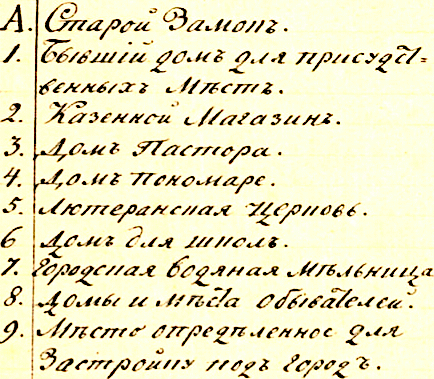 А. Старой Замокъ.
1. Бывшiй домъ для присудст-
венныхъ Мѣстъ.
2. Казенной Магазинъ.
3. Домъ Пастора.
4. Домъ пономаре.
5. Лютеранская Церковь.
6 Домъ для школъ.
7. Городская водяная мѣльница
8. Домы и мѣста обывателей.
9. Мѣсто опредѣленное для
Застройки подъ городъ.